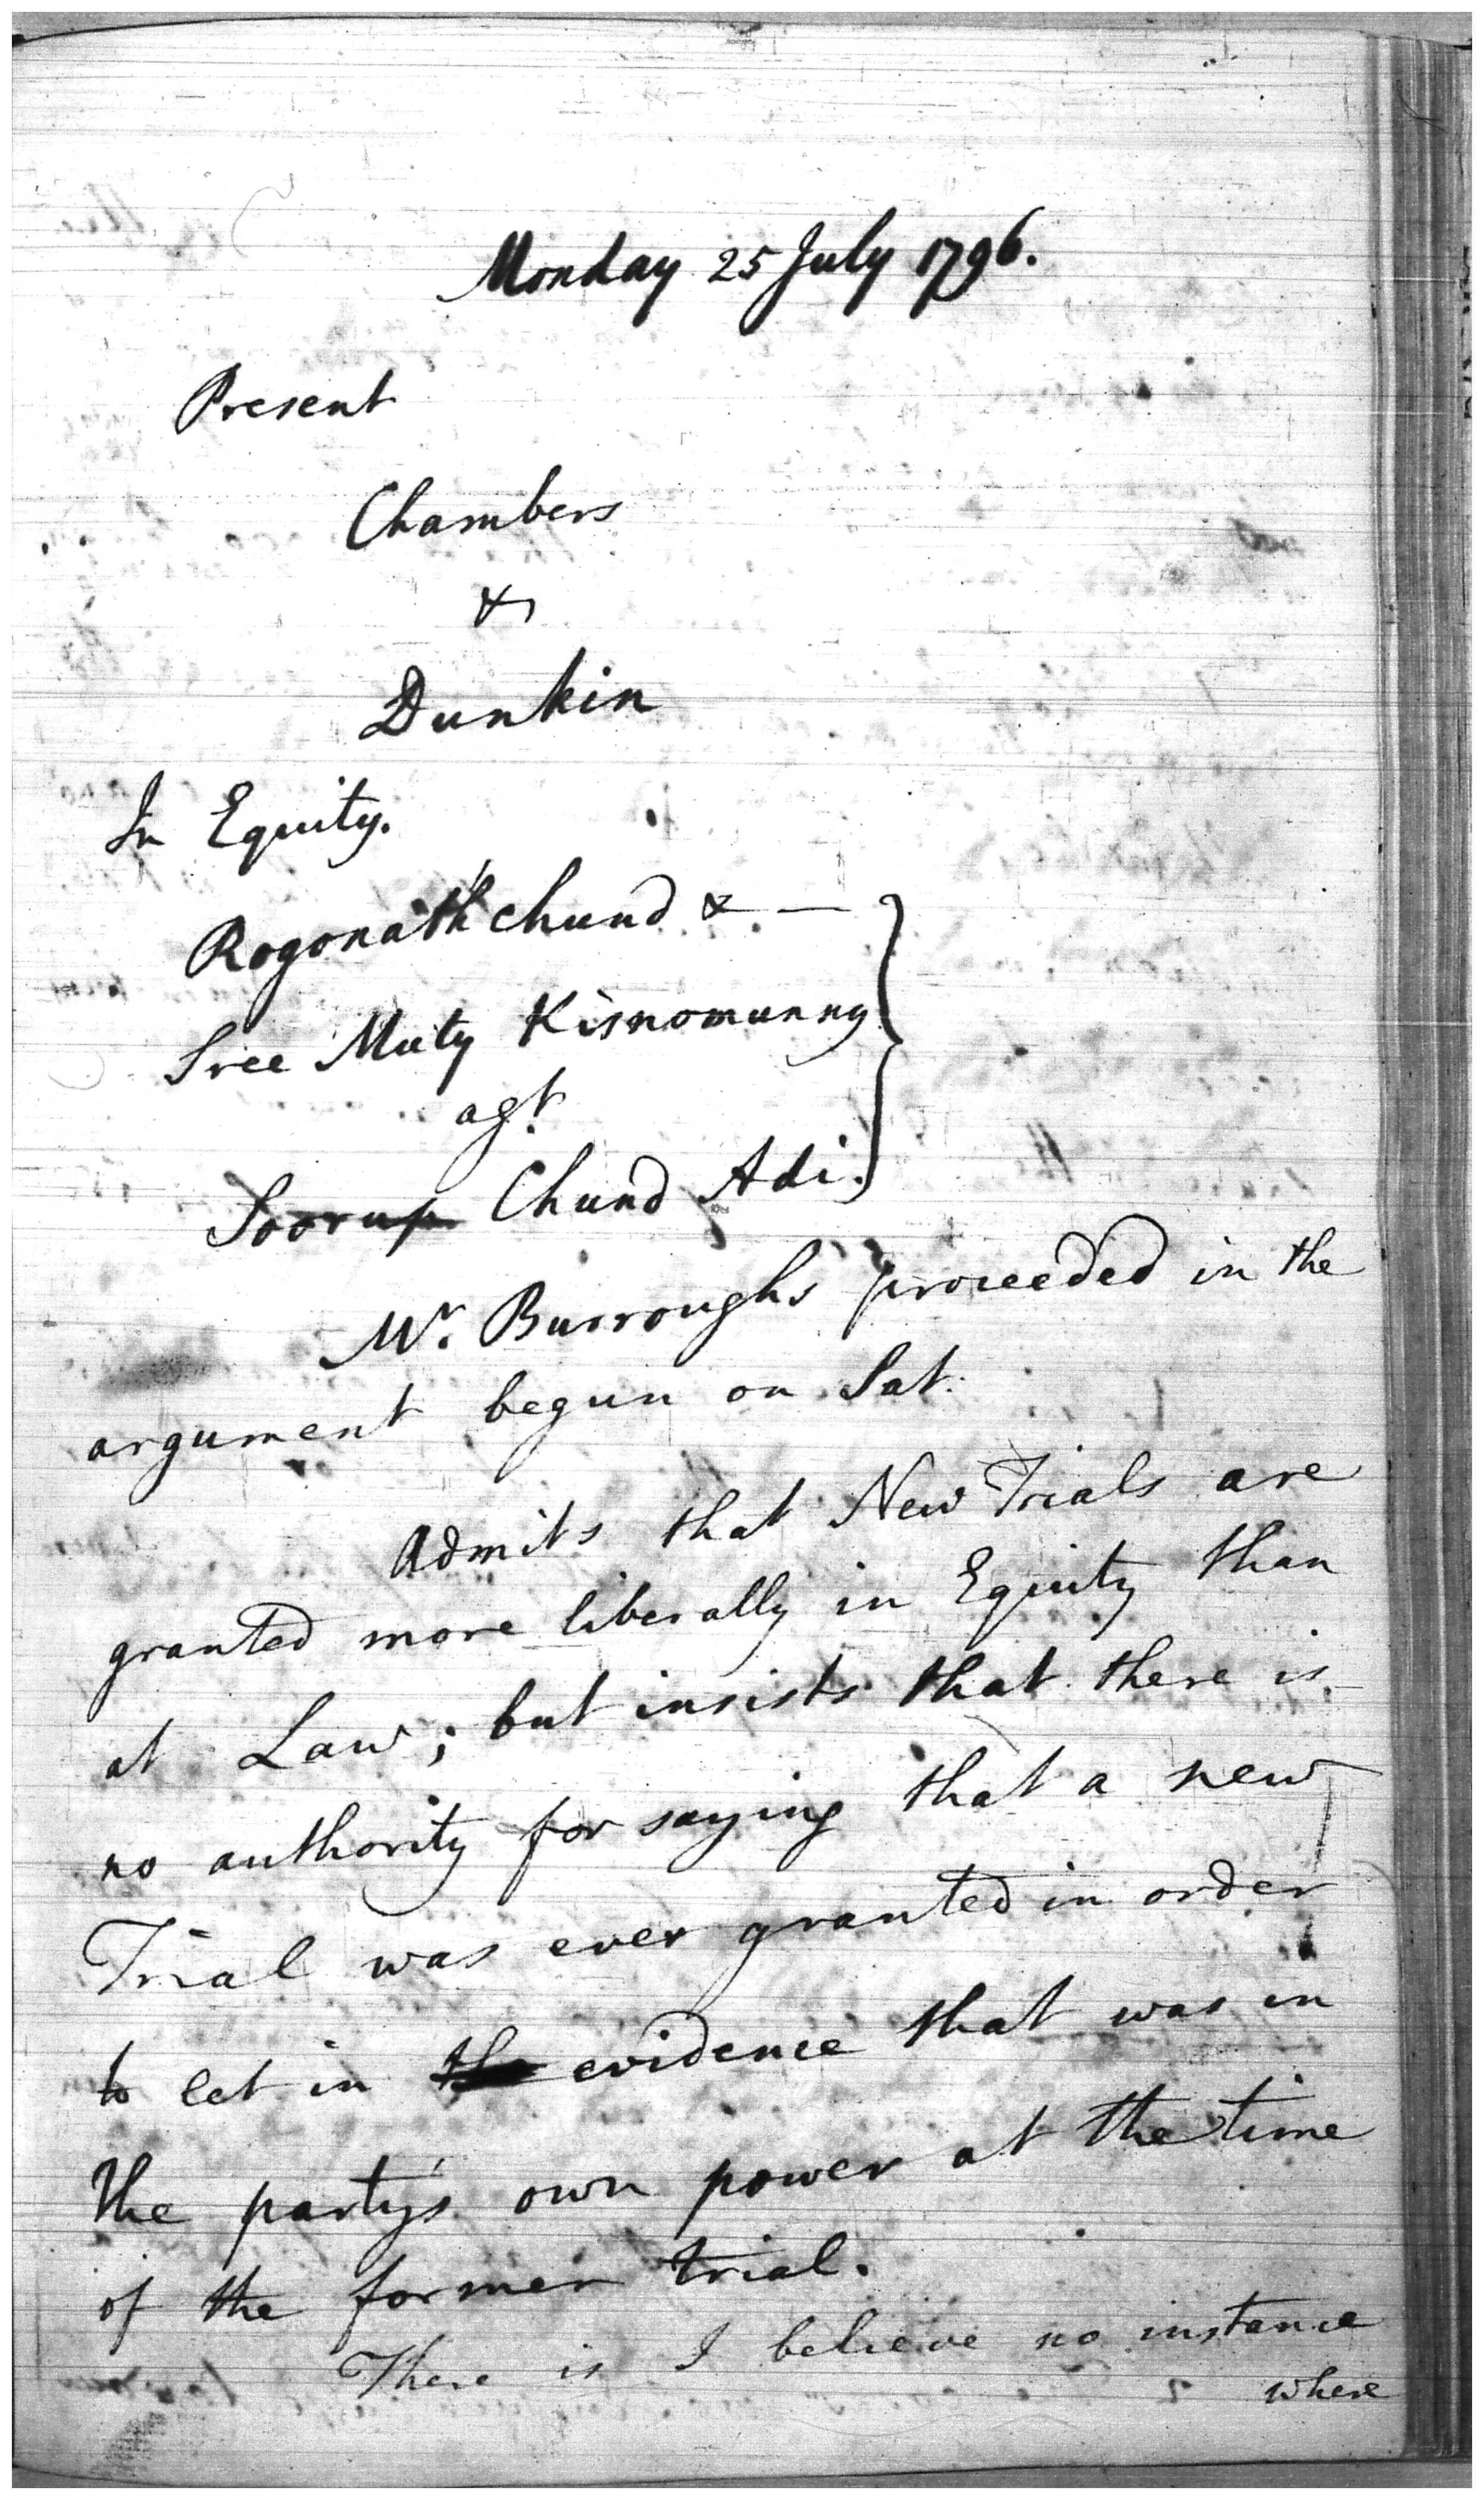 Monday 25 July 1796.
Present
Chambers
&
Dunkin
In Equity.
Rogonath chund & —
Sree Muty Kisnomunny
agt.
Soorup Chund Adi.
Mr. Burroughs proceeded in the
argument begun on Sat.
Admits that New Trials are
granted more liberally in Equity than
at Law; but insists that there is
no authority for saying that a new
Trial was ever granted in order
to let in the evidence that was in
the party's own power at the time
of the former trial.
There is I believe no instance
where